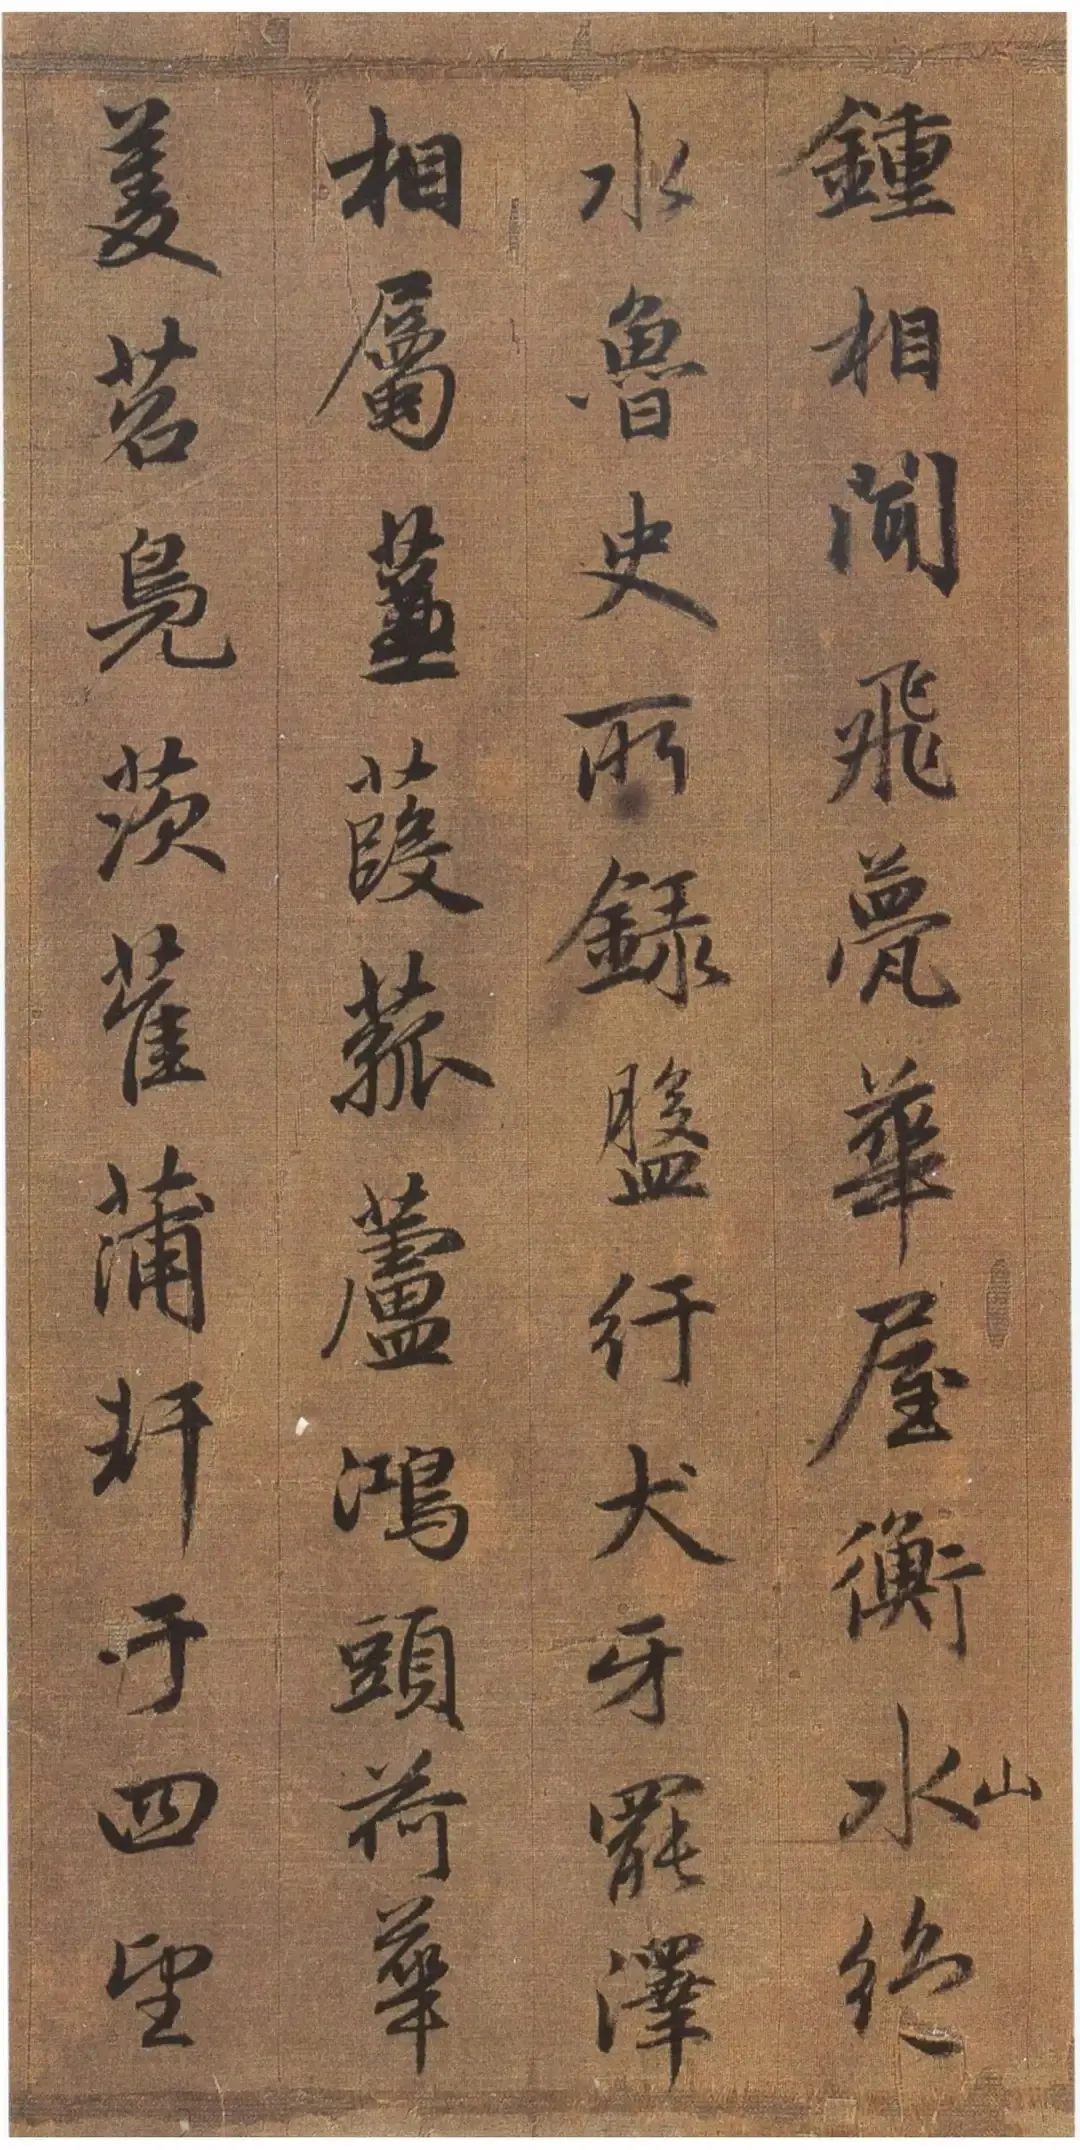 鍾相聞飛甍華屋衡水山絕
水魯史所錄盤紆犬牙罷澤
相屬蒹葭菰蘆鴻頭荷華
菱苕鳧茨萑蒲軒于四望